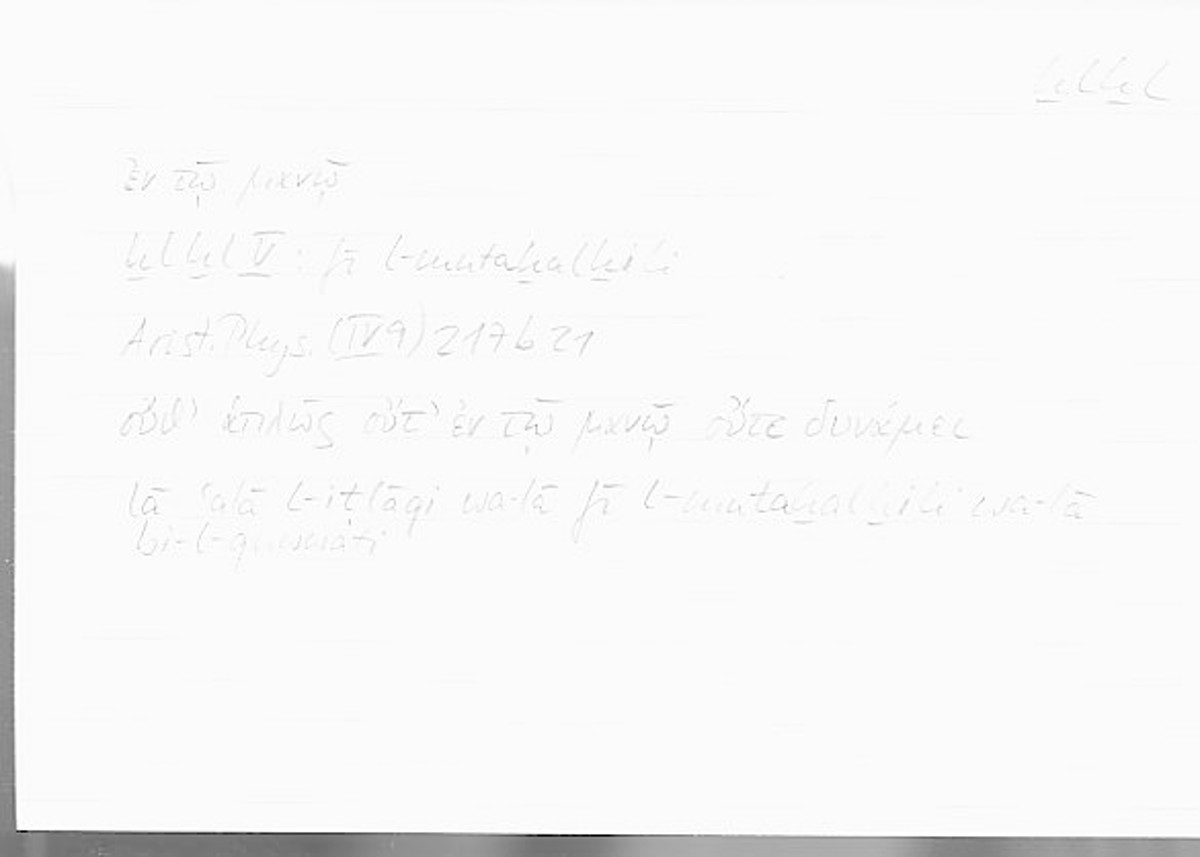 ḫlḫl
ἐν τῷ μανῷ
ḫlḫl V : fī l-mutaḫalḫili
Arist. Phys. (IV 9) 217 b 21
οὔθ' ἁπλῶς οὔτ' ἐν τῷ μανῷ οὔτε δυνάμει
lā ʿalā l-iṭlāqi wa-lā fī l-mutaḫalḫili wa-lā
bi-l-quwwati